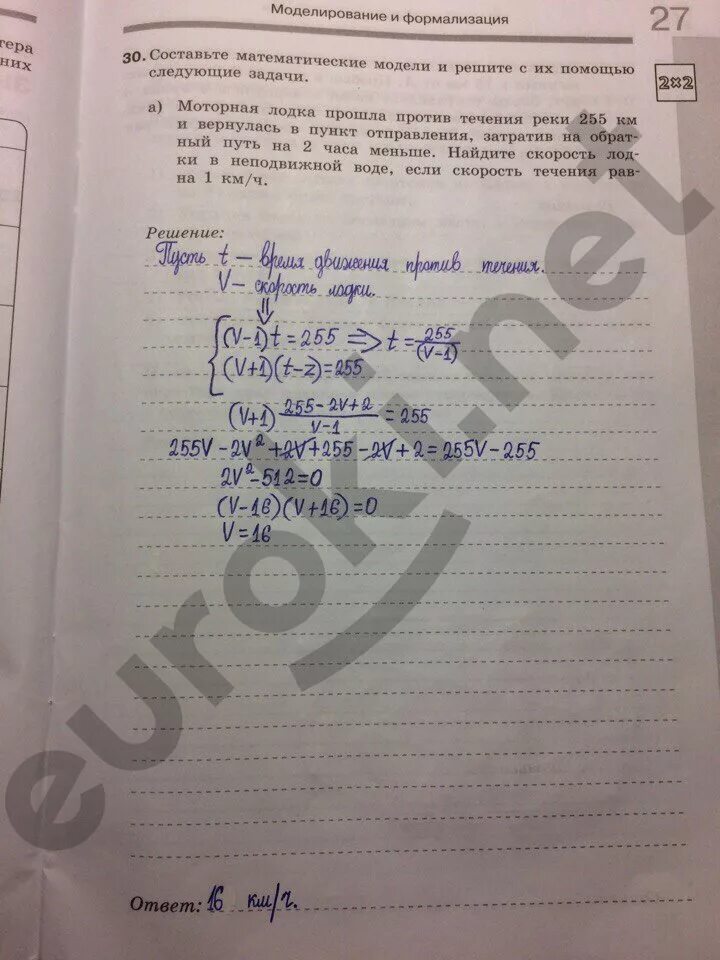 Моделирование и формализация
27
тера
них
30. Составьте математические модели и решите с их помощью
следующие задачи.
2×2
а) Моторная лодка прошла против течения реки 255 км
и вернулась в пункт отправления, затратив на обрат-
ный путь на 2 часа меньше. Найдите скорость лод-
ки в неподвижной воде, если скорость течения рав-
на 1 км/ч.
Решение:
Пусть t — время движения против течения.
V — скорость лодки.
⇓
{(V-1)t=255 ⇒ t=255/(V-1)
(V+1)(t-2)=255
(V+1) (255-2V+2)/(V-1) = 255
255V-2V²+2V+255-2V+2=255V-255
2V²-512=0
(V-16)(V+16)=0
V=16
Ответ: 16 км/ч.
euroki.net